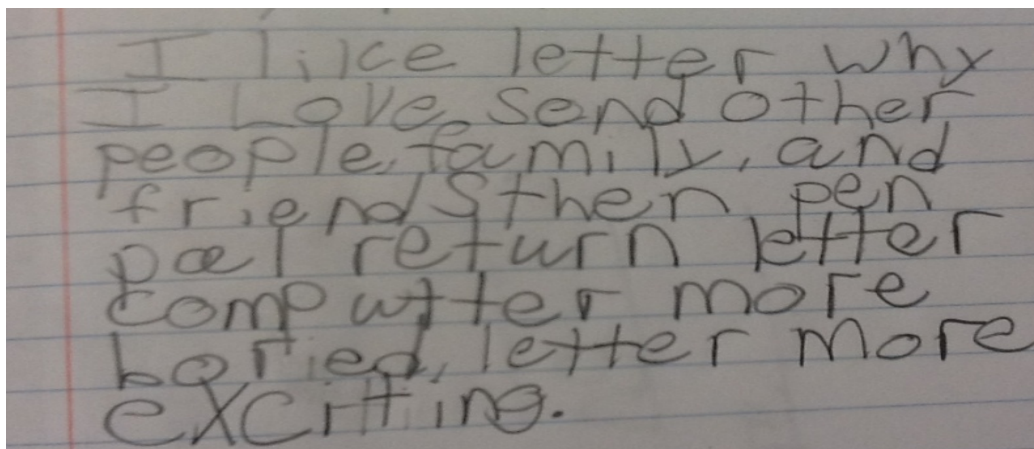 I like letter why
I Love send other
people, family, and
friends then pen
pal return letter
computter more
boried, letter more
excitting.